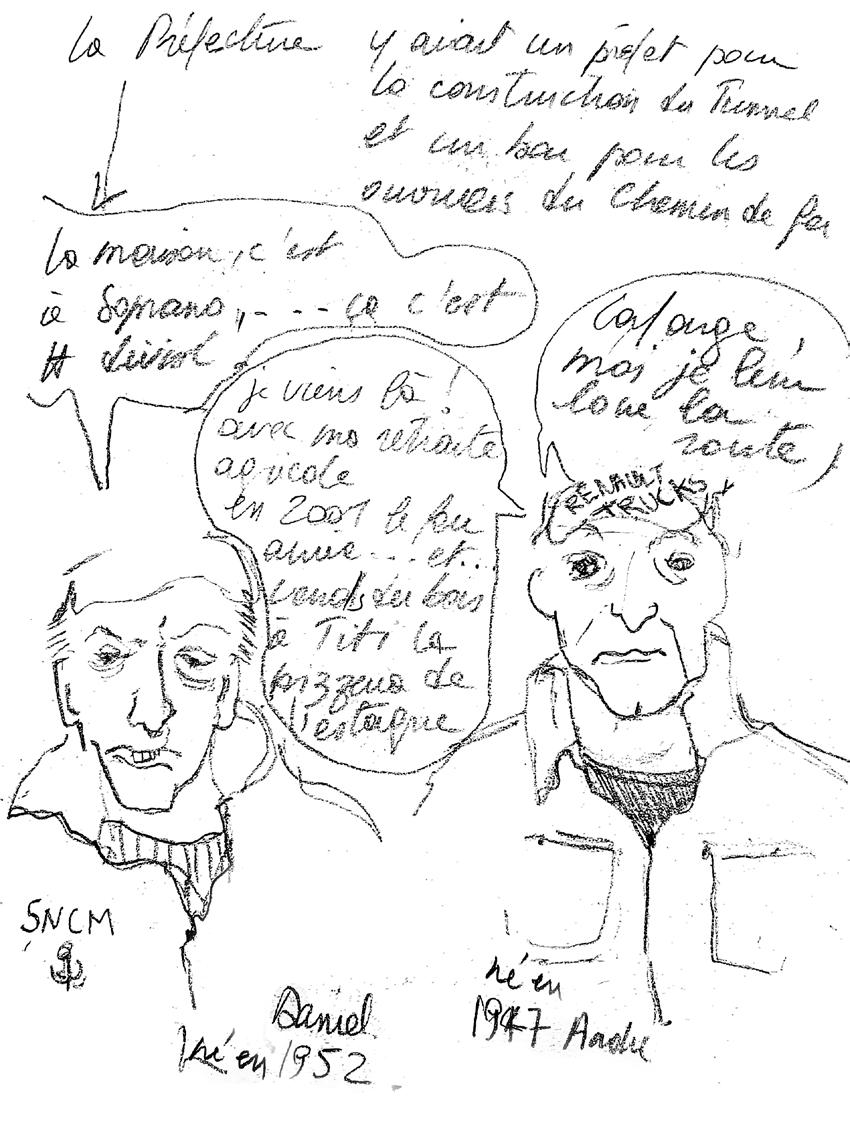 la Préfecture
y avait un préfet pour
la construction du Tunnel
et un bar pour les
ouvriers du Chemin de fer
la maison, c'est
à Soprano, - - - - ça c'est
Cal'ange,
moi je leur
loue la
route
RENAULT
TRUCKS
je viens là !
avec ma retraite
agricole
en 2001 le feu
arrive - - - et..
vends du bois
à Titi la
pizzeria de
l'estaque
SNCM
Daniel
né en 1952
né en
1947 André